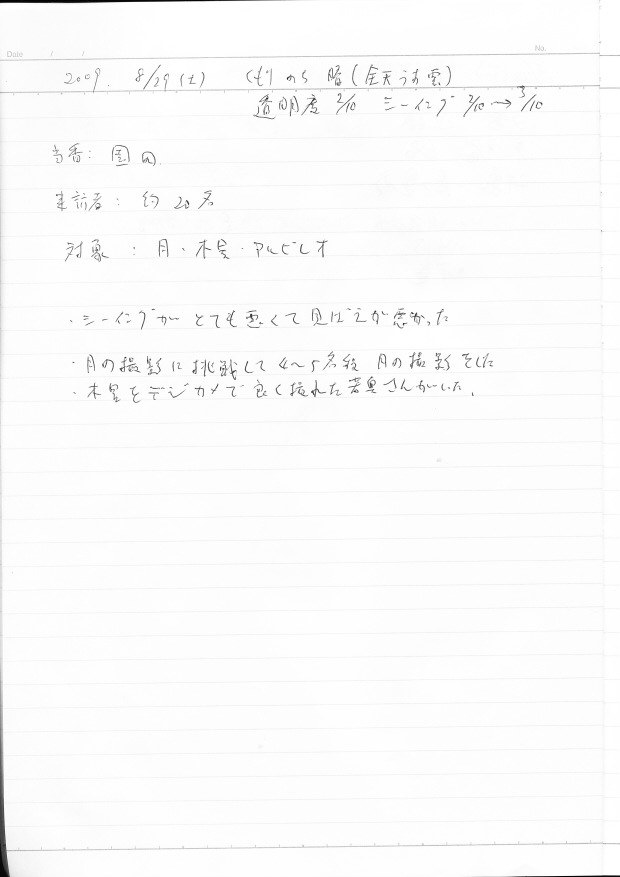 Date / /
No.
2009. 8/29(土) くもりのち晴(全天うす雲)
透明度 2/10 シーイング 2/10→3/10
当番: 園田
来訪者: 約20名
対象: 月・木星・アルビレオ
・シーイングがとても悪くて見ばえが悪かった
・月の撮影に挑戦して4〜5名程 月の撮影をした
・木星をデジカメで良く撮れた さんがいた。